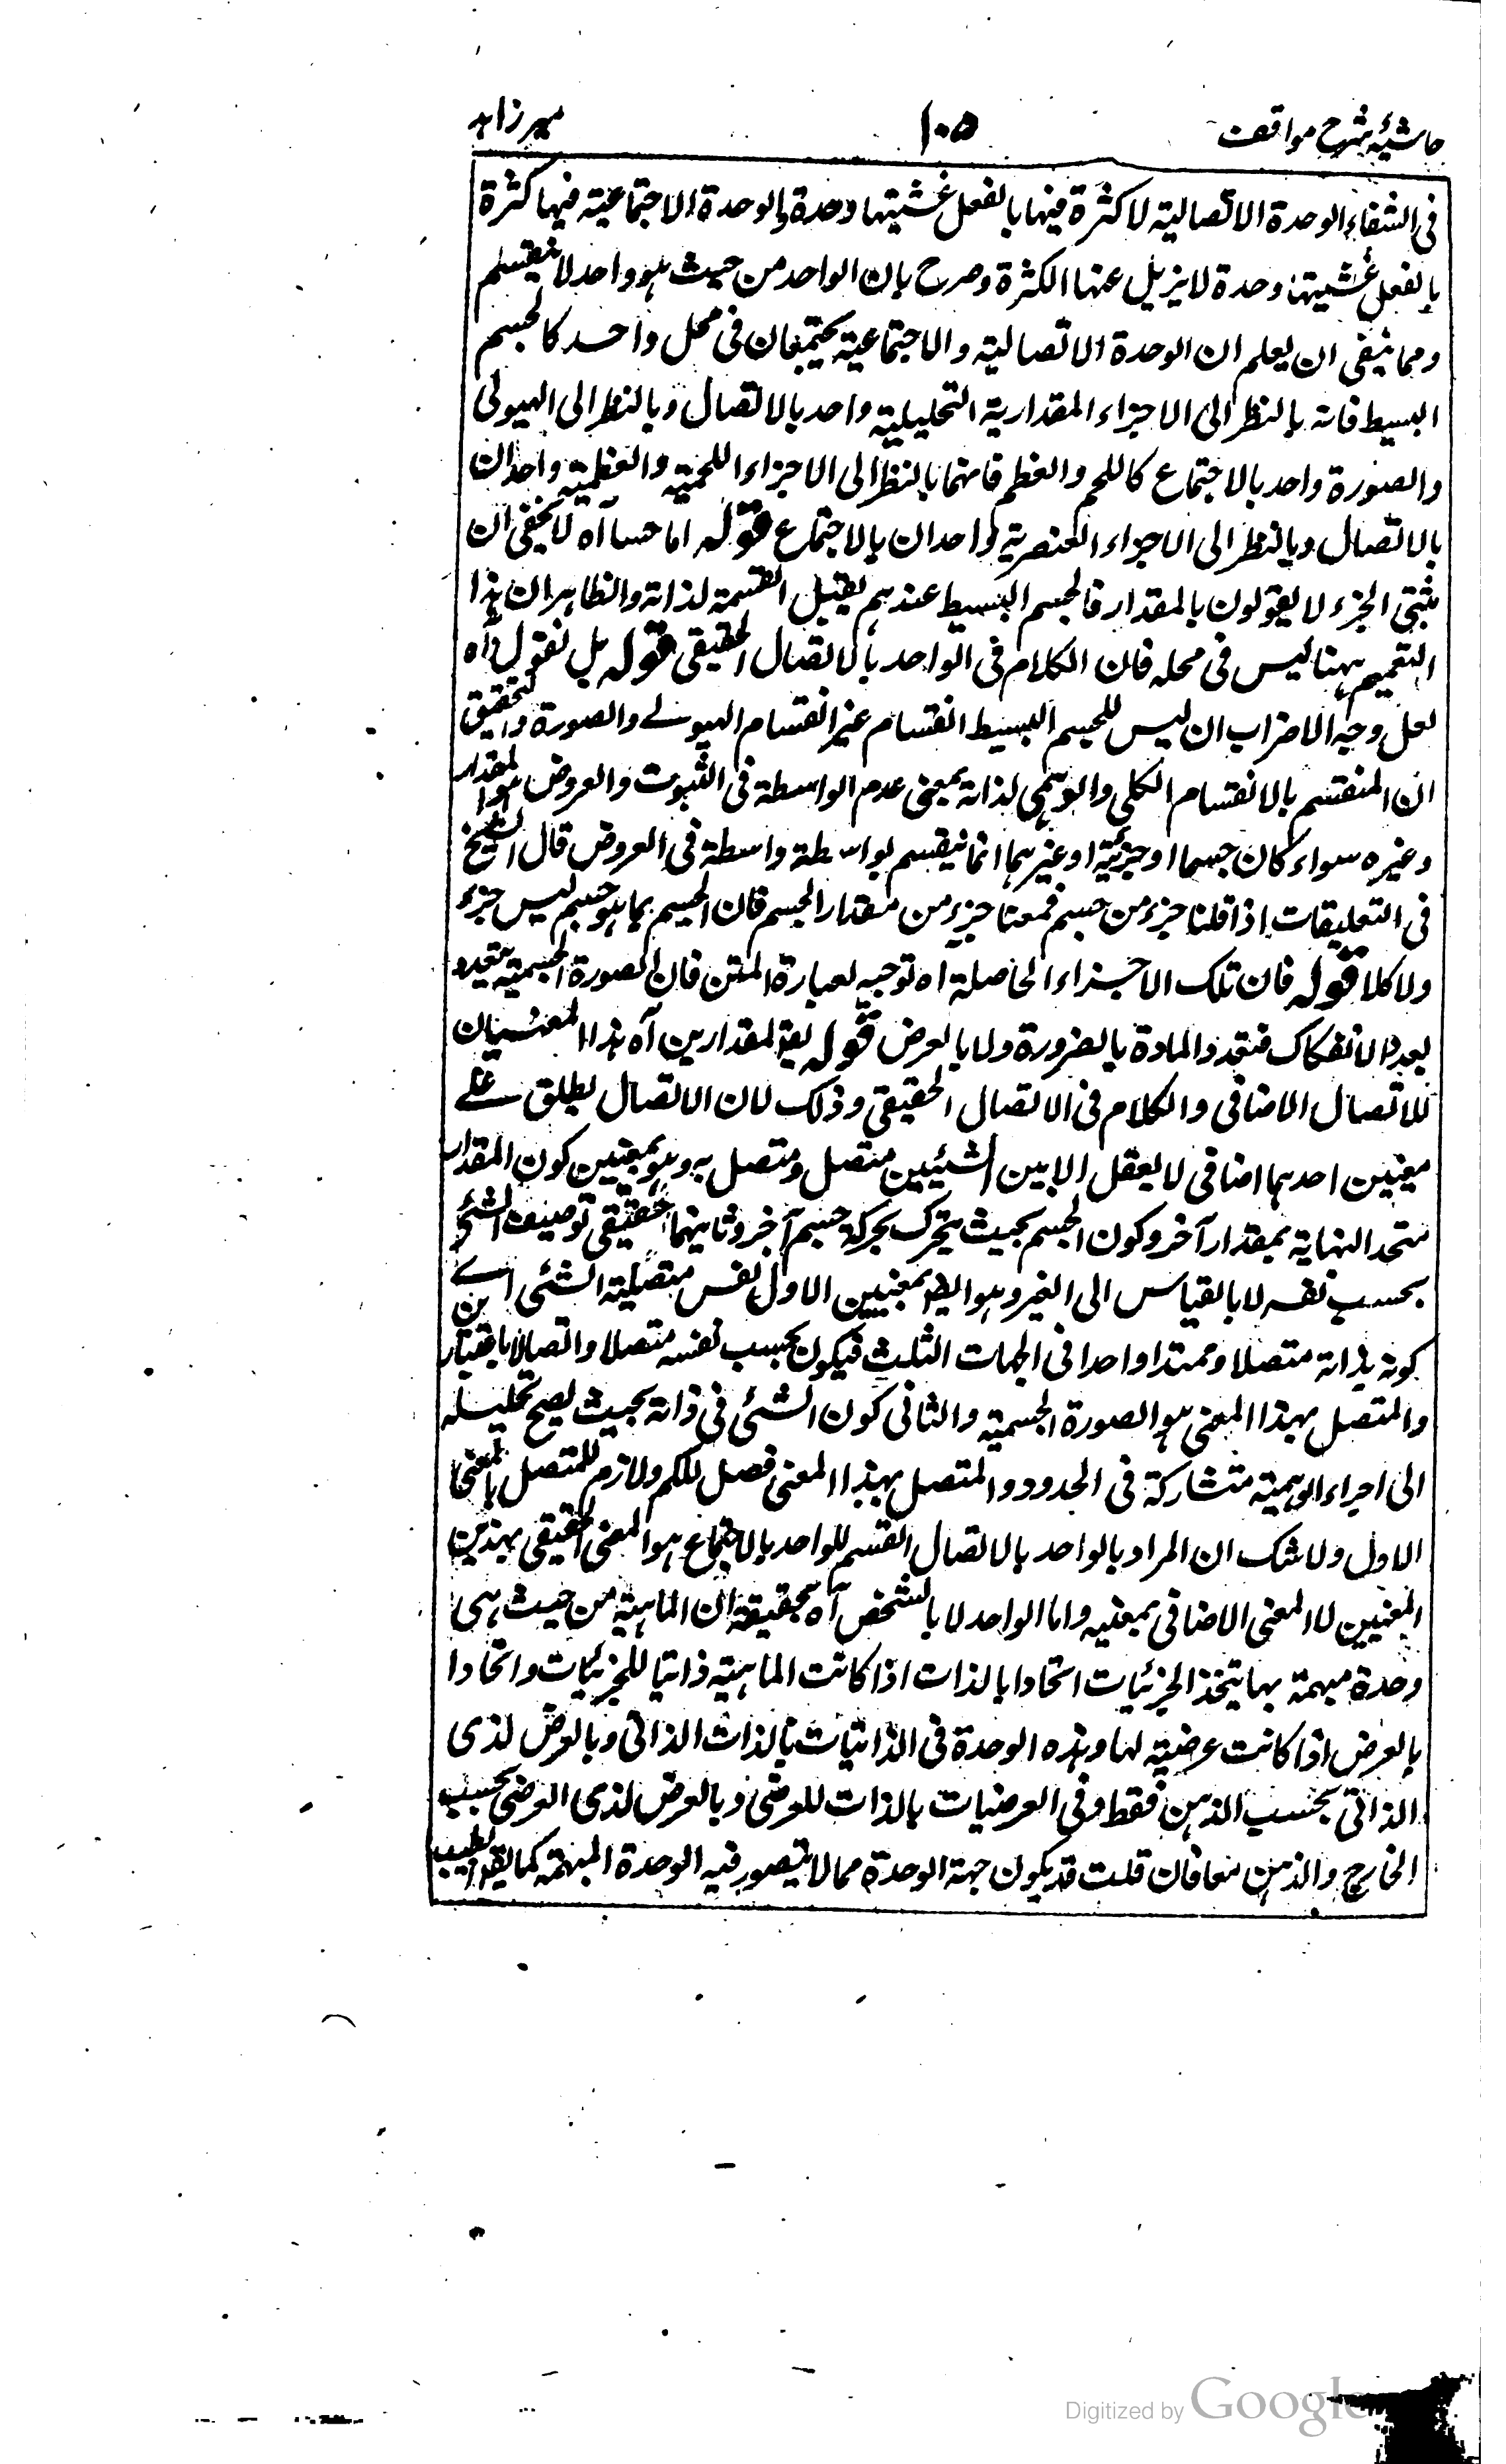 حاشیۂ شرح مواقف ۱۰۵ میرزاہد
فی الشفاء الوحدة الاتصالیة لا کثرة فیہا بالفعل غشیتہا وحدة والوحدة الاجتماعیة فیہا کثرة
بالفعل غشیتہا وحدة لا یزیل عنہا الکثرة وصرح بان الواحد من حیث ہو واحد لا ینقسم
ومما ینبغی ان یعلم ان الوحدة الاتصالیة والاجتماعیة یجتمعان فی محل واحد کالجسم
البسیط فانہ بالنظر الی الاجزاء المقداریة التحلیلیة واحد بالاتصال وبالنظر الی الہیولی
والصورة واحد بالاجتماع کاللحم والعظم فانہما بالنظر الی الاجزاء اللحمیة والعظمیة واحدان
بالاتصال وبالنظر الی الاجزاء العنصریة واحدان بالاجتماع قولہ اما حسا آہ لا یخفی ان
مثبتی الجزء لا یقولون بالمقدار فالجسم البسیط عندہم یقبل القسمة لذاتہ والظاہر ان ہذا
التعمیم ہہنا لیس فی محلہ فان الکلام فی الواحد بالاتصال الحقیقی قولہ بل نقول آہ
لعل وجہ الاضراب ان لیس للجسم البسیط انقسام غیر انقسام الہیولے والصورة والتحقیق
ان المنقسم بالانقسام الکلی والوہمی لذاتہ بمعنی عدم الواسطة فی الثبوت والعروض ہو المقدار
وغیرہ سواء کان جسما او جزئیہ او غیرہما انما ینقسم بواسطة واسطة فی العروض قال الشیخ
فی التعلیقات اذا قلنا جزء من جسم فمعناہ جزء من مقدار الجسم فان الجسم بما ہو جسم لیس جزء
ولا کلا قولہ فان تلک الاجزاء الحاصلة آہ توجیہ لعبارة المتن فان الصورة الجسمیة یتعدد
بعد الانفکاک فتعدد المادة بالضرورة ولا بالعرض قولہ یقو لمقدارین آہ ہذا المعنییان
للاتصال الاضافی والکلام فی الاتصال الحقیقی وذلک لان الاتصال یطلق علے
معنیین احدہما اضافی لا یعقل الا بین الشیئیین متصل ومتصل بہ وہو بمعنیین کون المقدار
متحد النہایة بمقدار آخر وکون الجسم بحیث یتحرک بحرکة جسم آخر وثانیہما حقیقی توصیف الشئ
بحسب نفسہ لا بالقیاس الی الغیر وہو ایضا بمعنیین الاول نفس متصلیة الشئی اے
کونہ بذاتہ متصلا وممتدا واحدا فی الجہات الثلث فیکون بحسب نفسہ متصلا واتصالا باعتبارین
والمتصل بہذا المعنی ہو الصورة الجسمیة والثانی کون الشئی فی ذاتہ بحیث یصح تحلیلہ
الی اجراء الوہمیة متشارکة فی الحدود والمتصل بہذا المعنی فصل للکم ولازم للمتصل بالمعنی
الاول ولا شک ان المراد بالواحد بالاتصال القسم للواحد بالاجتماع ہو المعنی الحقیقی بہذین
المعنیین لا المعنی الاضافی بمعنیہ واما الواحد لا بالشخص آہ تحقیقہ ان الماہیة من حیث ہی
وحدة مبہمة بہا یتخذ الجزئیات اتحادا بالذات اذا کانت الماہیة ذاتیا للجزئیات واتحادا
بالعرض اذا کانت عرضیة لہا وہذہ الوحدة فی الذاتیات بالذات الذاتی وبالعرض لذی
الذاتی بحسب الذہن فقط وفی العرضیات بالذات للعرضی وبالعرض لذی العرضی بحسب
الخارج والذہن معا فان قلت قد یکون جہة الوحدة مما لا یتصور فیہ الوحدة المبہمة کما یقو
Digitized by Google